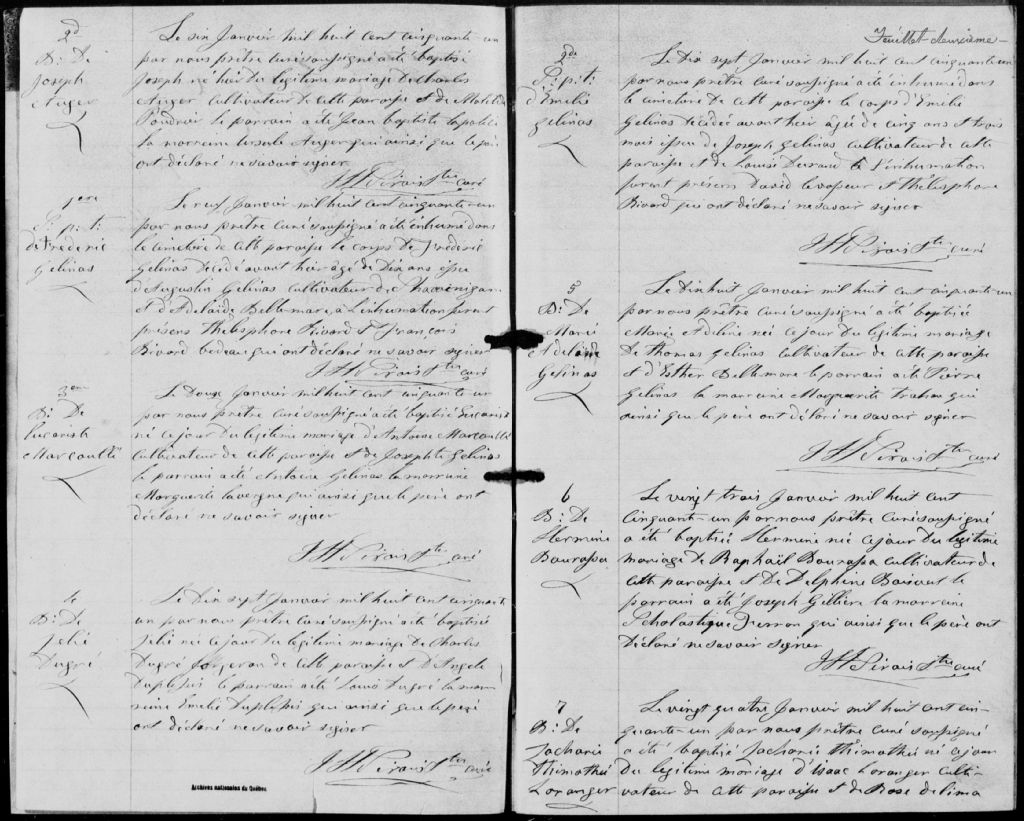 2d
B: De
Joseph
Auger
Le six Janvier mil huit cent cinquante-un
par nous prêtre curé soussigné a été baptisé
Joseph né hier du légitime mariage de Charles
Auger cultivateur de cette paroisse et de Matilde
le parrain a été Jean baptiste
la marraine Ursule Auger qui ainsi que le père
ont déclaré ne savoir signer
curé
1ere
S: p: t:
de Frédéric
Gelinas
Le neuf Janvier mil huit cent cinquante-un
par nous prêtre curé soussigné a été inhumé dans
le cimetière de cette paroisse le corps de Frédéric
Gelinas décédé avant hier âgé de Dix ans issu
d'Augustin Gelinas cultivateur de Shawenigan
et d'Adelaïde Bellemare, à l'inhumation furent
présens Thelesphore Rivard et François
Rivard bedeau qui ont déclaré ne savoir signer
curé
3eme
B: De
Eucariste
Marcoullé
Le Douze Janvier mil huit cent cinquante-un
par nous prêtre curé soussigné a été baptisé Eucariste
né ce jour du légitime mariage d'Antoine Marcoullé
cultivateur de cette paroisse et de Josephte Gelinas
le parrain a été Antoine Gelinas la marraine
Marguerite Lavergne qui ainsi que le père ont
déclaré ne savoir signer
curé
4e
B: De
Jelié
Dugré
Le Dix sept Janvier mil huit cent cinquante
un par nous prêtre curé soussigné a été baptisé
Jelié né ce jour du légitime mariage de Charles
Dugré forgeron de cette paroisse et d'Angele
Duplessis le parrain a été Louis Dugré la mar-
raine Emelie Duplessis qui ainsi que le père
ont déclaré ne savoir signer
curé
Archives nationales du Québec
Feuillet deuxième
2de
S: p: t:
d'Emelie
Gelinas
Le Dix sept Janvier mil huit cent cinquante-un
par nous prêtre curé soussigné a été inhumé dans
le cimetière de cette paroisse le corps d'Emelie
Gelinas décédée avant hier âgée de cinq ans et trois
mois issue de Joseph Gelinas cultivateur de cette
paroisse et de Louise à l'inhumation
furent présens David levasseur et Thélesphore
Rivard qui ont déclaré ne savoir signer
curé
5
B: De
Marie
Adeline
Gelinas
Le Dix huit Janvier mil huit cent cinquante-un
par nous prêtre curé soussigné a été baptisée
Marie Adeline née ce jour du légitime mariage
De Thomas Gelinas cultivateur de cette paroisse
et d'Esther Bellemare le parrain a été Pierre
Gelinas la marraine Marguerite Trahan qui
ainsi que le père ont déclaré ne savoir signer
curé
6
B: De
Hermine
Bourassa
Le vingt trois Janvier mil huit cent
Cinquante-un par nous prêtre curé soussigné
a été baptisée Hermine née ce jour du légitime
mariage de Raphaël Bourassa cultivateur de
cette paroisse et De Delphine Boivert le
parrain a été Joseph la marraine
Scholastique qui ainsi que le père ont
Déclaré ne savoir signer
curé
7
B: De
Zacharie
Thimothé
Loranger
Le vingt quatre Janvier mil huit cent cin-
quante-un par nous prêtre curé soussigné
a été baptisé Zacharie Thimothé né ce jour
Du légitime mariage d'Isaac Loranger culti-
vateur de cette paroisse et de Rose de lima